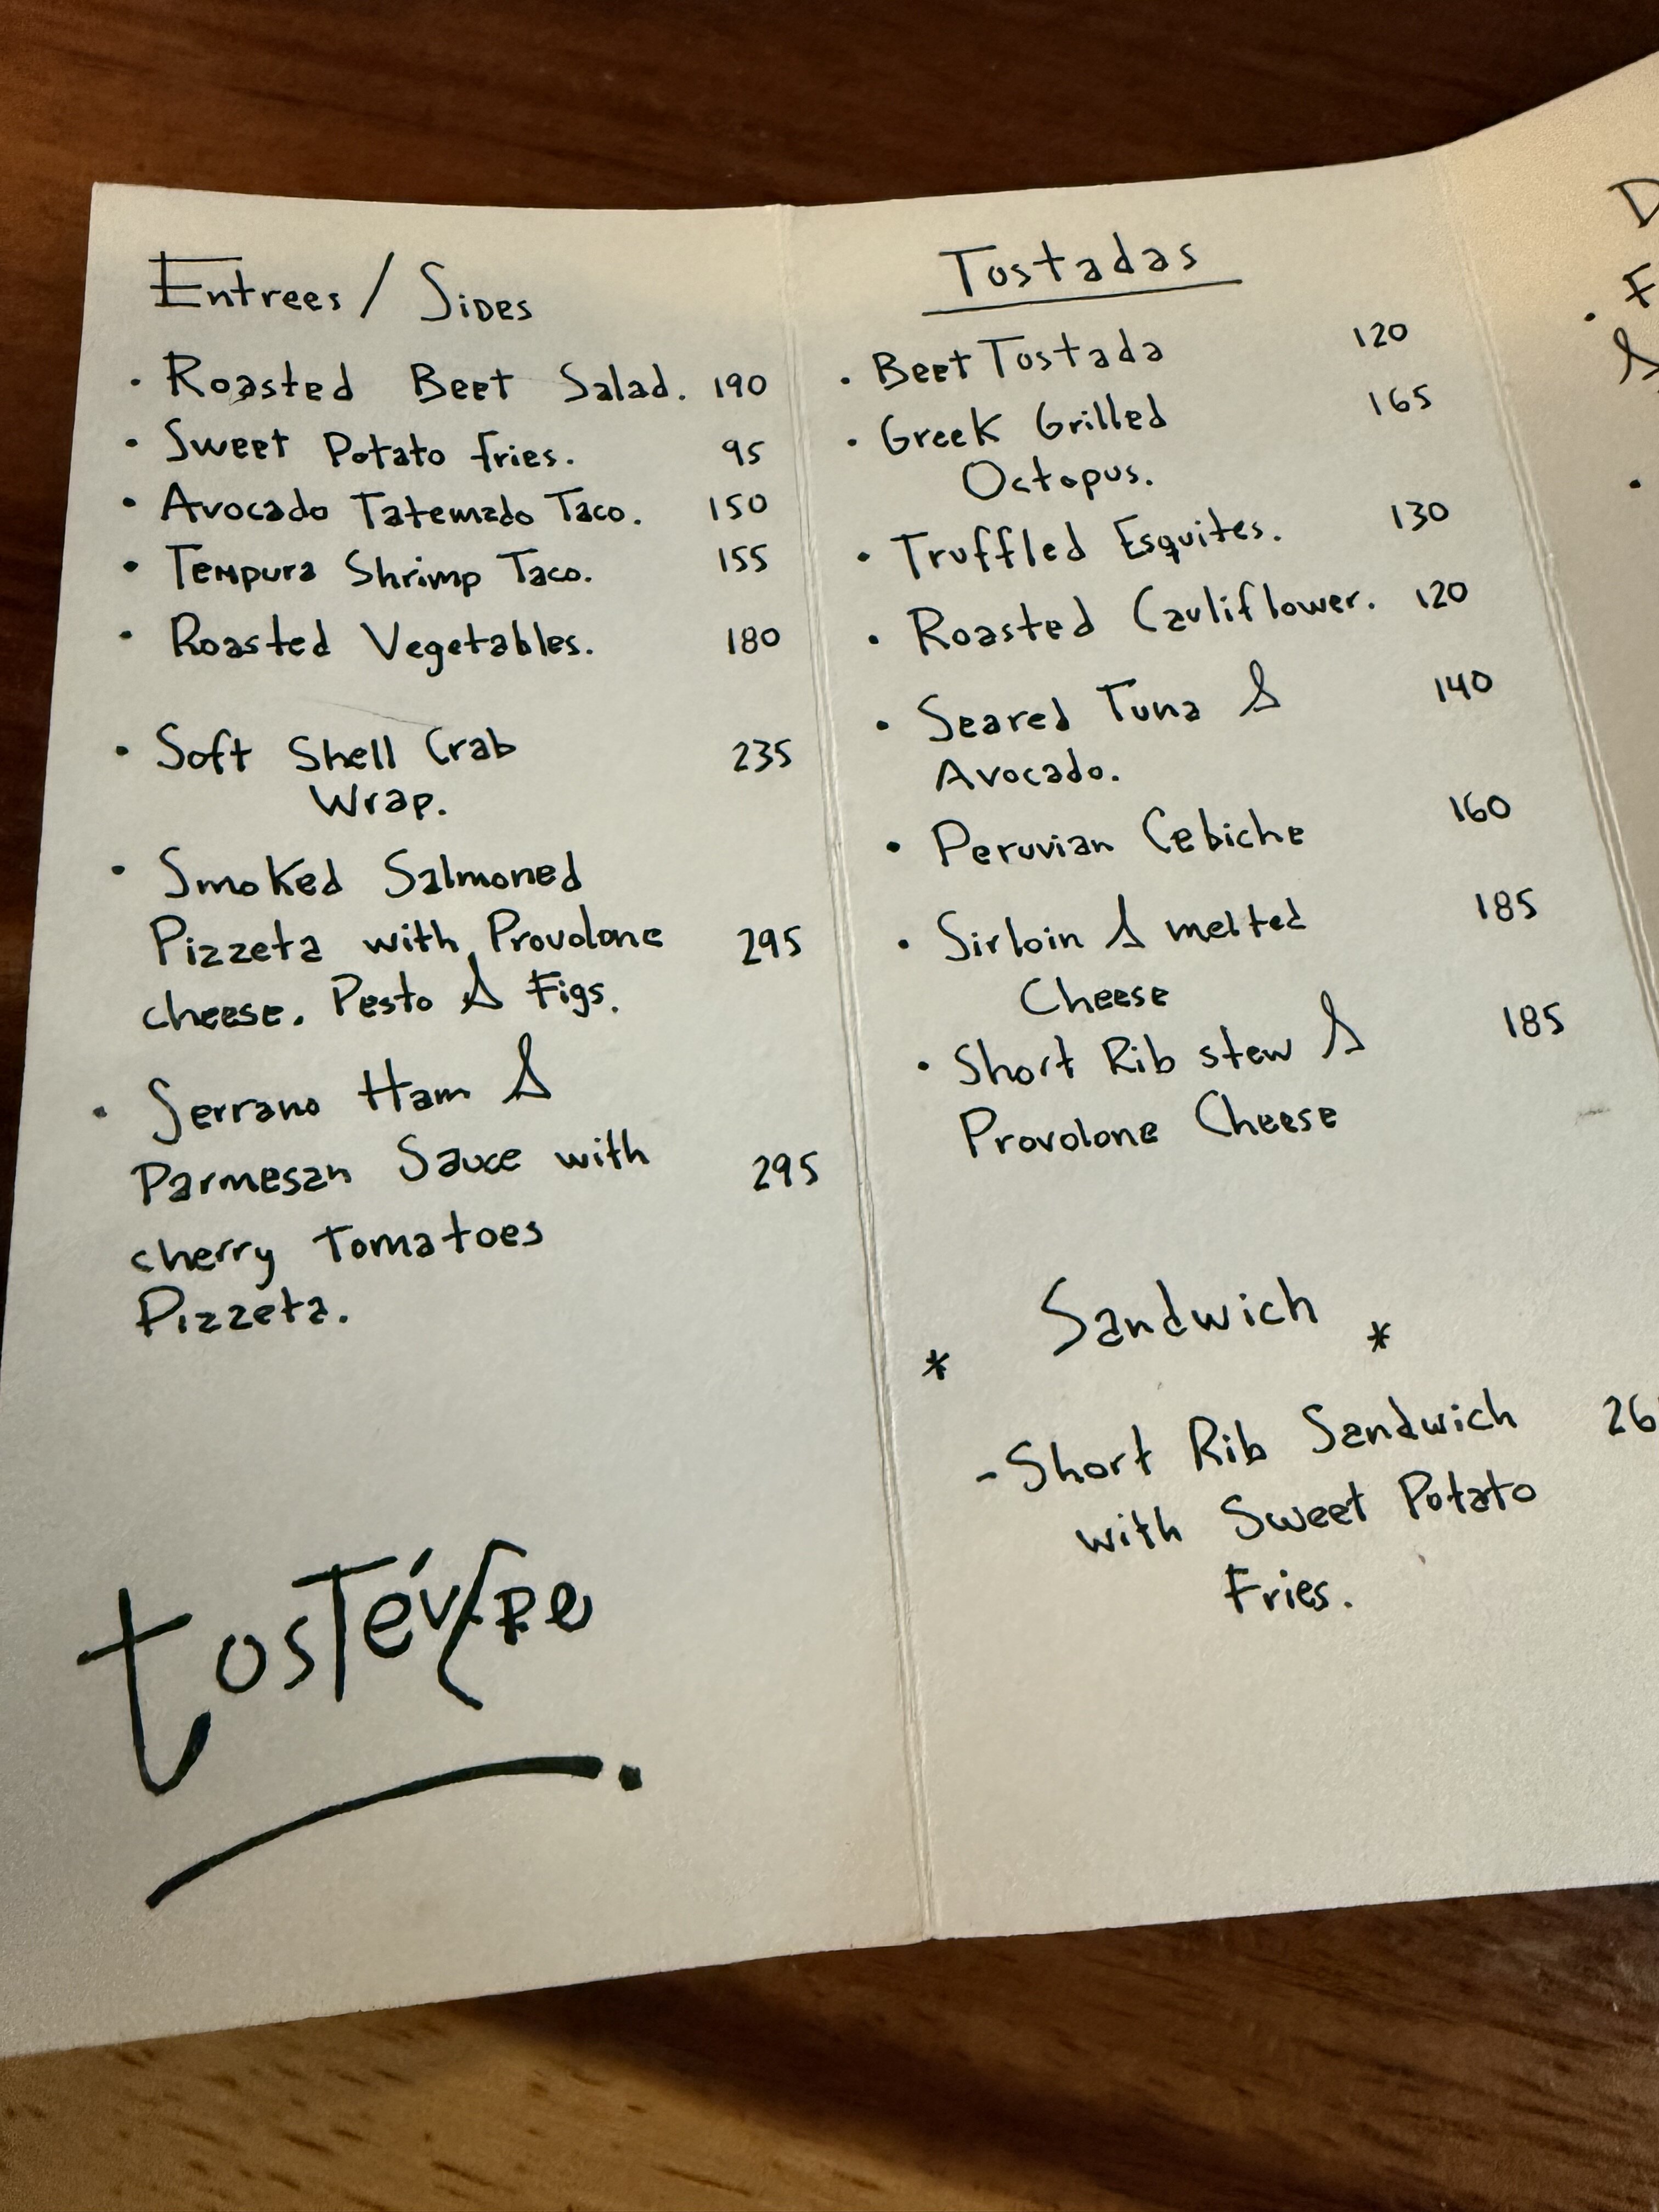 Entrees / Sides
• Roasted Beet Salad. 190
• Sweet Potato fries. 95
• Avocado Tatemado Taco. 150
• Tempura Shrimp Taco. 155
• Roasted Vegetables. 180
• Soft Shell Crab 235
Wrap.
• Smoked Salmoned
Pizzeta with Provolone 295
cheese. Pesto & Figs.
• Serrano Ham &
Parmesan Sauce with 295
cherry Tomatoes
Pizzeta.
Tostadas
• Beet Tostada 120
• Greek Grilled 165
Octopus.
• Truffled Esquites. 130
• Roasted Cauliflower. 120
• Seared Tuna & 140
Avocado.
• Peruvian Cebiche 160
• Sirloin & melted 185
Cheese
• Short Rib stew & 185
Provolone Cheese
* Sandwich *
- Short Rib Sandwich
with Sweet Potato
Fries.